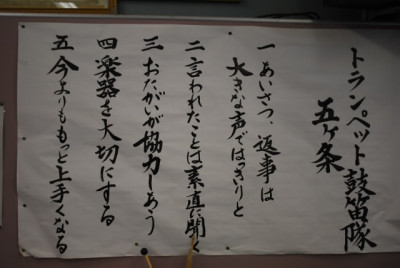 トランペット鼓笛隊
五ヶ条
一 あいさつ、返事は
大きな声ではっきりと
二 言われたことは素直に聞く
三 おたがいが協力しあう
四 楽器を大切にする
五 今よりももっと上手くなる